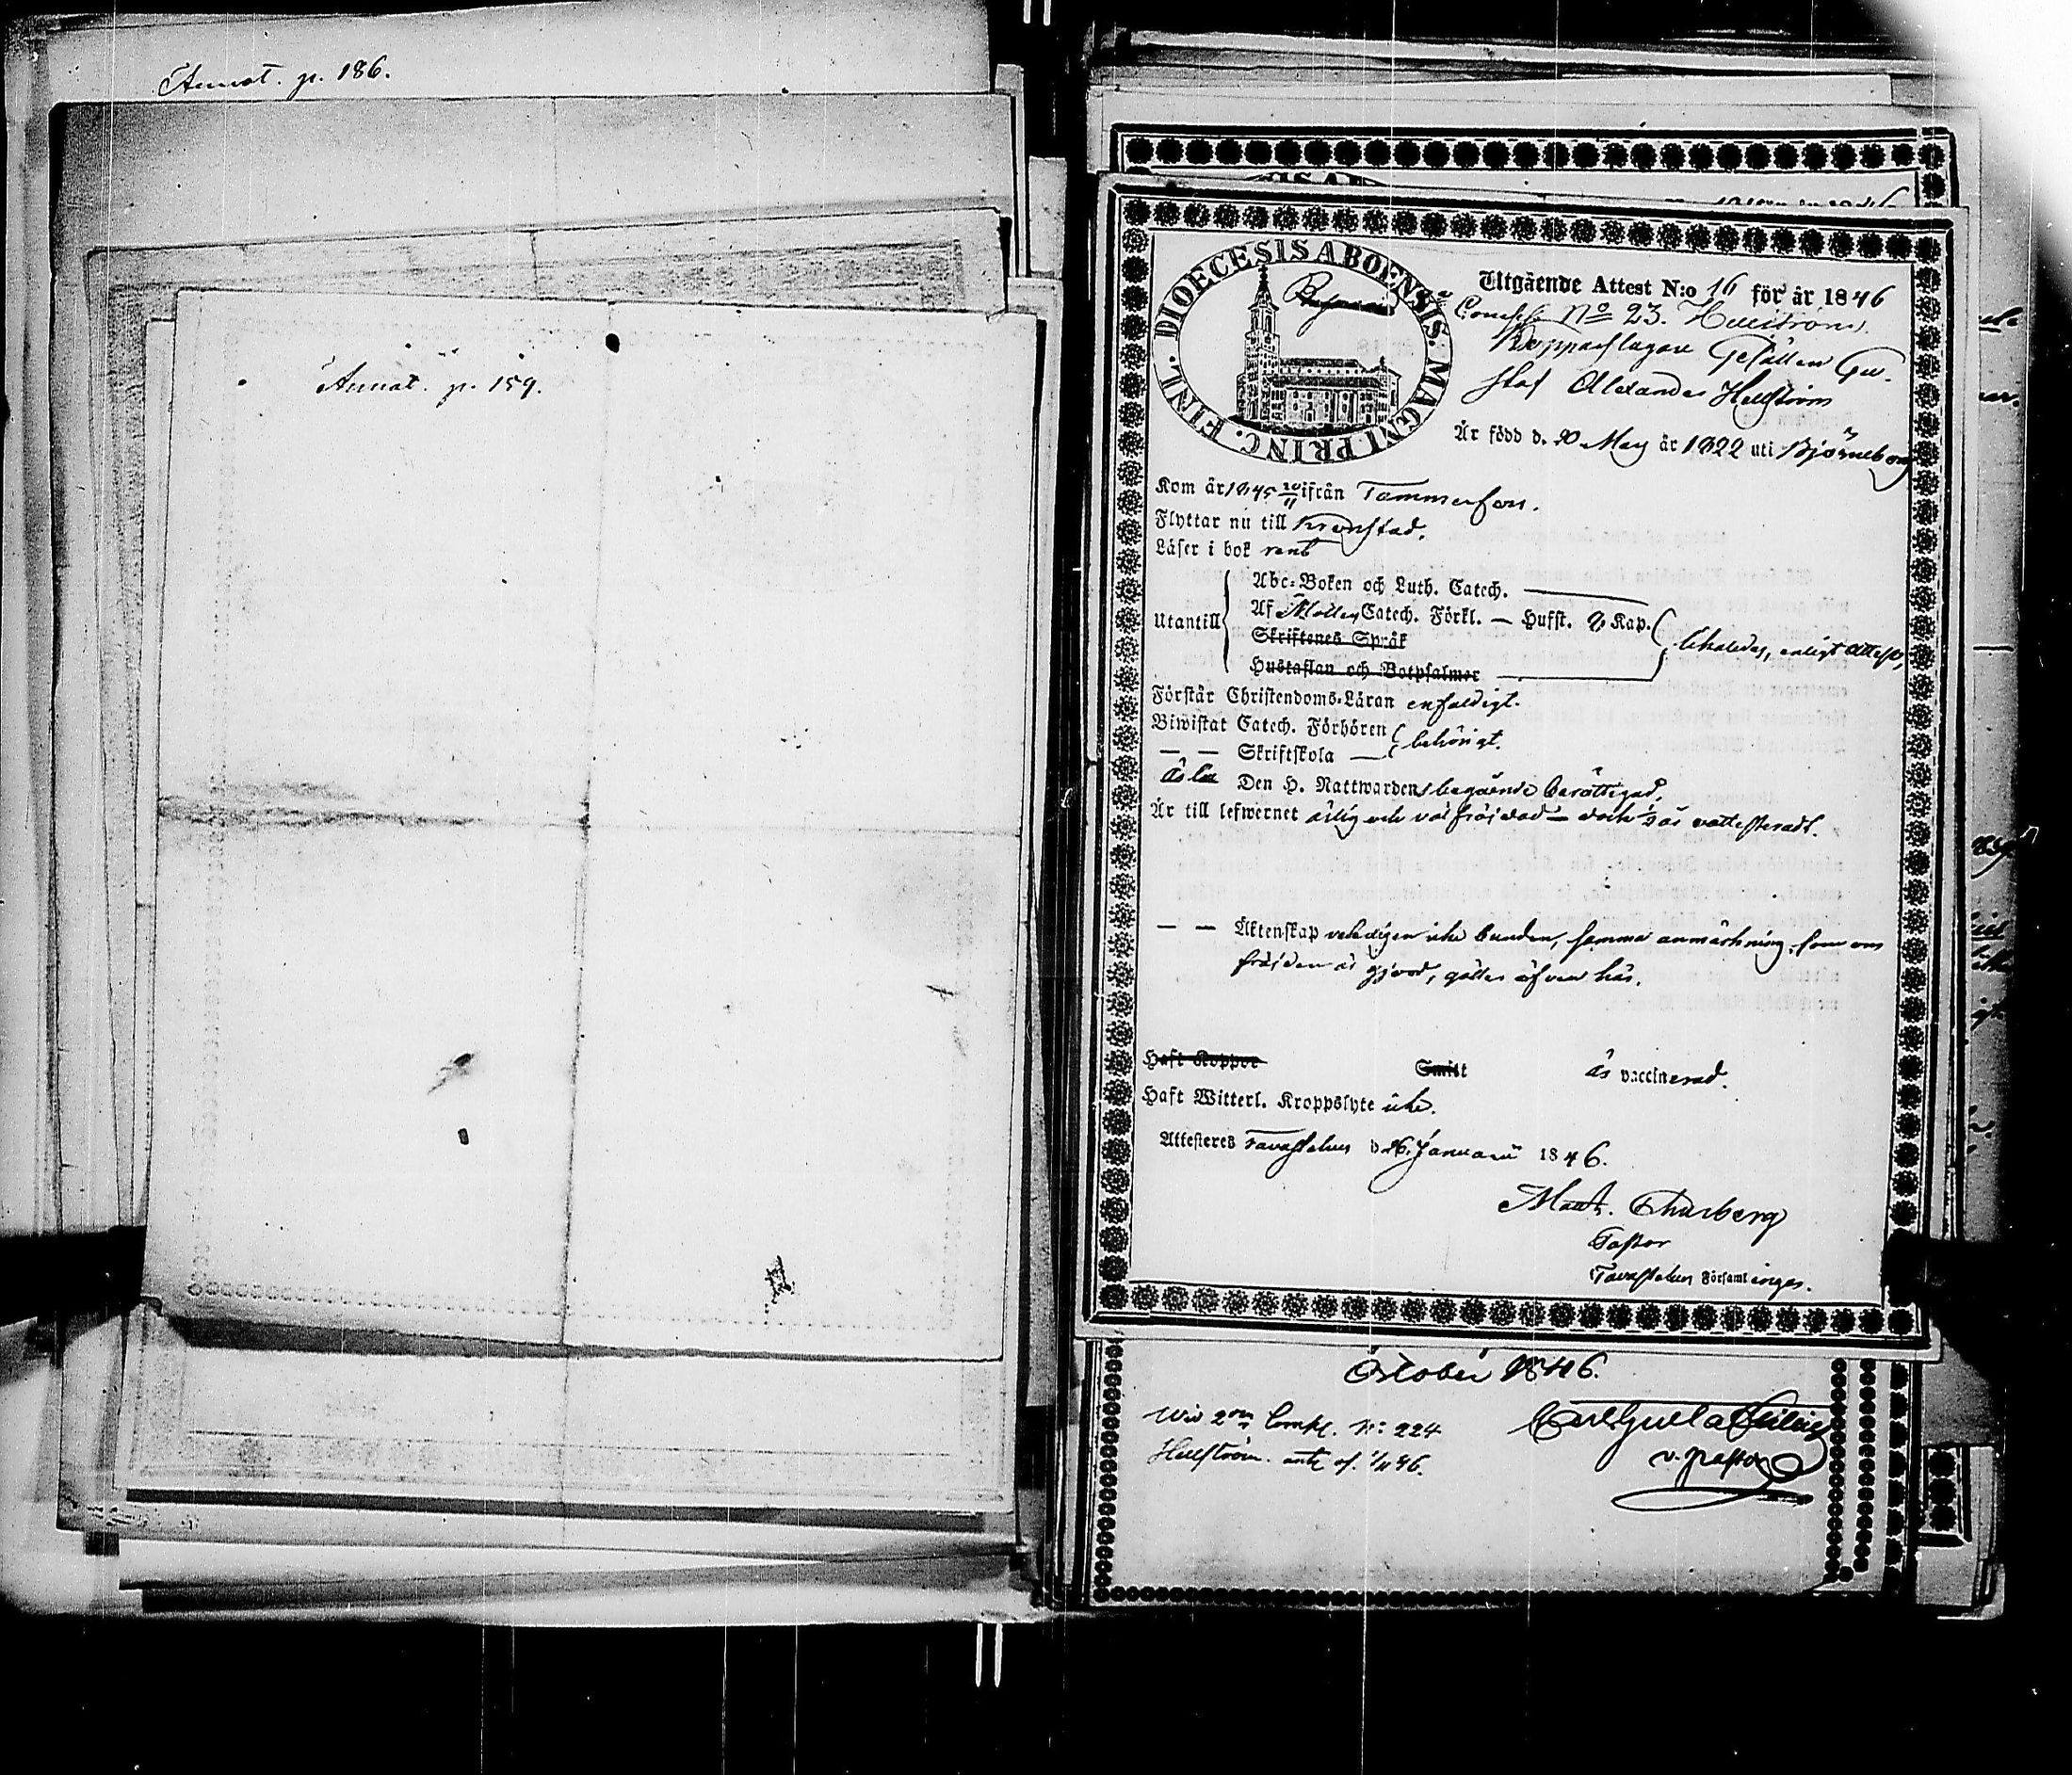 Annot. p. 186.
Annot. p. 159.
DIOECESIS ABOENSIS. MAGNI PRINC. FINL.
Utgående Attest N:o 16 för år 1846
No 23.
Kopparslagare Gesällen Gu-
staf Alexander Hellström
Är född d. 20 May år 1822 uti Björneborg
Kom år 1845 20/11 ifrån Tammerfors.
Flyttar nu till Kronstad.
Läser i bok rent
Utantill
Abc-Boken och Luth. Catech.
Af Möllers Catech. Förkl. — Hufst. & Kap.
Skriftenes Språk
Hustaflan och Botpsalmer
enligt attest,
Förstår Christendoms-Läran enfaldigt.
Biwistat Catech. Förhören behörigt.
— — Skriftskola —
är till Den H. Nattwardens begående berättigad.
Är till lefwernet ärlig och väl fräjdad — dock
— — Äktenskap veterligen icke bunden, samma anmärkning, som om
fräjden är gjord, gäller äfven här.
Haft Koppor Smitt är vaccinerad.
Haft Witterl. Kroppslyte icke.
Attesteres Tavastehus d 26 Januarii 1846.
Matth. Thurberg
Pastor
Tavastehus Församlingar.
October 1846.
Wid 2 Comp. No 224
Hellström. 1/11 46.
v. pastor